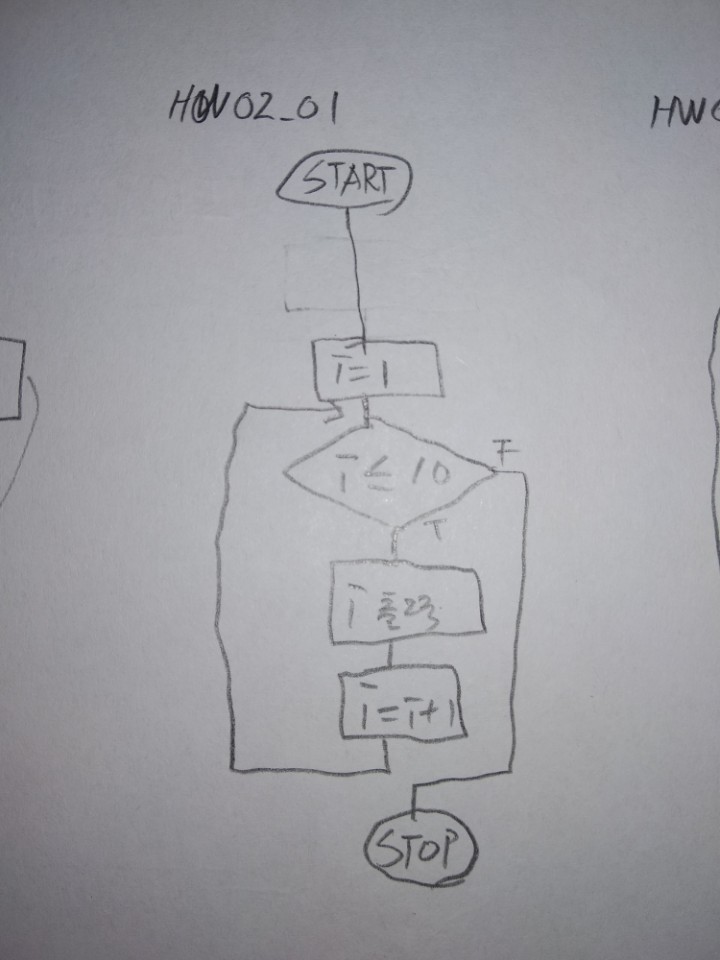 HW02_01
HW
START
i=1
i≤10
F
T
i 출력
i=i+1
STOP